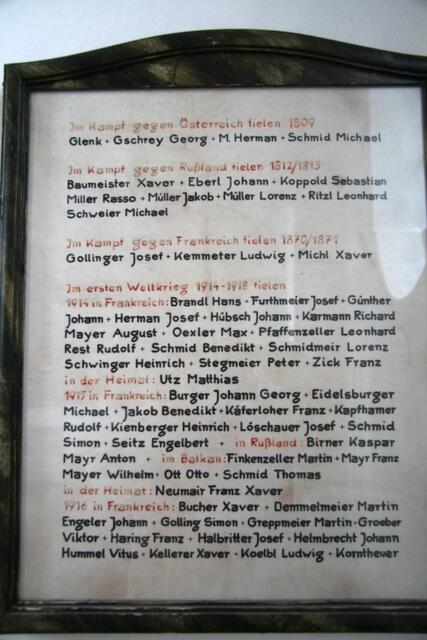 Im Kampf gegen Österreich fielen 1809
Glenk + Gschrey Georg + M. Herman + Schmid Michael
Im Kampf gegen Rußland fielen 1812/1813
Baumeister Xaver + Eberl Johann + Koppold Sebastian
Miller Rasso + Müller Jakob + Müller Lorenz + Ritzl Leonhard
Schweier Michael
Im Kampf gegen Frankreich fielen 1870/1871
Gollinger Josef + Kemmeter Ludwig + Michl Xaver
Im ersten Weltkrieg 1914-1918 fielen
1914 in Frankreich: Brandl Hans + Furthmeier Josef + Günther
Johann + Herman Josef + Hübsch Johann + Karmann Richard
Mayer August + Oexler Max + Pfaffenzeller Leonhard
Rest Rudolf + Schmid Benedikt + Schmidmeir Lorenz
Schwinger Heinrich + Stegmeier Peter + Zick Franz
in der Heimat: Utz Matthias
1915 in Frankreich: Burger Johann Georg + Eidelsburger
Michael + Jakob Benedikt + Käferloher Franz + Kapfhamer
Rudolf + Kienberger Heinrich + Löschauer Josef + Schmid
Simon + Seitz Engelbert + in Rußland: Birner Kaspar
Mayr Anton + im Balkan: Finkenzeller Martin + Mayr Franz
Mayer Wilhelm + Ott Otto + Schmid Thomas
in der Heimat: Neumair Franz Xaver
1916 in Frankreich: Bucher Xaver + Demmelmeier Martin
Engeler Johann + Golling Simon + Greppmeier Martin + Groeber
Viktor + Haring Franz + Halbritter Josef + Helmbrecht Johann
Hummel Vitus + Kellerer Xaver + Koelbl Ludwig + Korntheuer